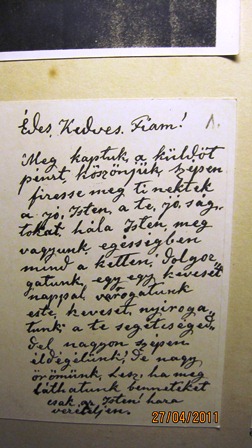 Édes, Kedves, Fiam! 1.
Meg kaptuk, a küldöt
pénzt, köszönjük szépen
firesse meg ti nektek
a jó, Isten, a te, jó, ság,
tokat, hála Isten, meg
vagyunk egésségben
mind a ketten, dolgoz
gatunk, egy egy keveset
nappal, varogatunk
este, keveset, nyiroga
tunk a te segitséged
del nagyon szépen
éldégélünk, de nagy
örömünk, lesz, ha meg
láthatunk benneteket
csak az Isten haza
vezéreljen.
27/04/2011